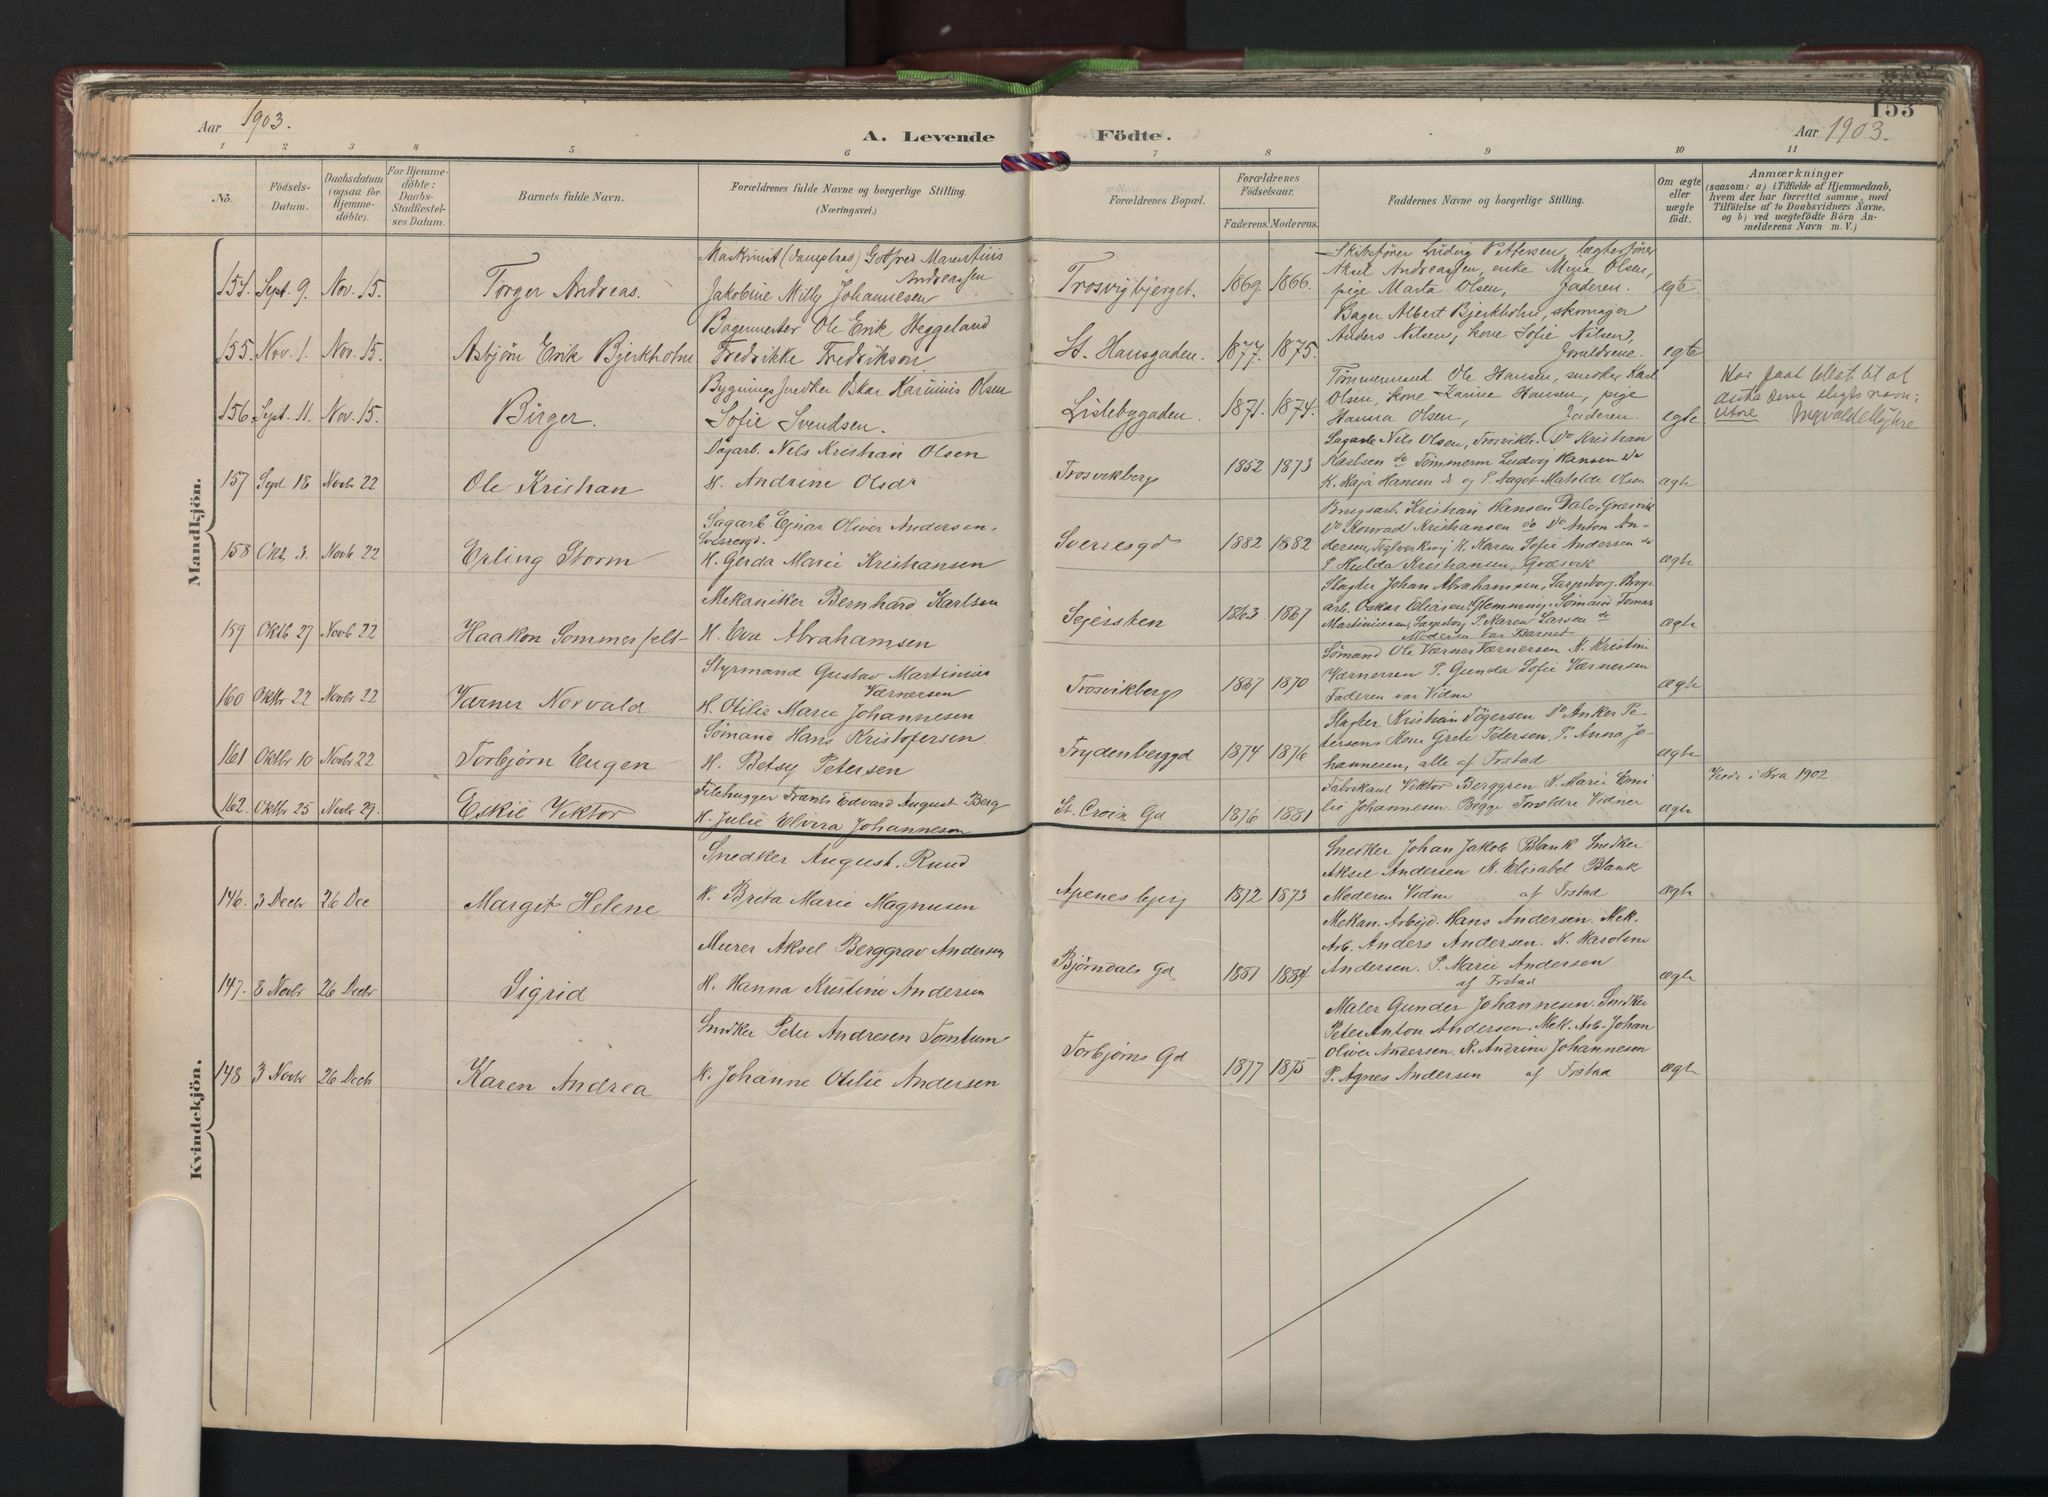 Aar 1903.
A. Levende Födte.
Aar 1903.
153
1 2 3 4 5 6 7 8 9 10 11
No.
Födsels-Datum.
Daabsdatum (ogsaa for Hjemmedöbte).
For Hjemmedöbte: Daabs-Stadfæstelses Datum.
Barnets fulde Navn.
Forældrenes fulde Navne og borgerlige Stilling.
(Næringsvei.)
Forældrenes Bopæl.
Forældrenes Födselsaar.
Faderens. Moderens.
Faddernes Navne og borgerlige Stilling.
Om ægte eller uægte födt.
Anmærkninger
(saasom: a) i Tilfælde af Hjemmedaab, hvem der har forrettet samme, med Tilföielse af to Daabsvidners Navne, og b) ved uægtefödte Börn Anmelderens Navn m. V.)
Mandkjön.
154. Sept. 9. Nov. 15. Torger Andreas.
Maskinist (Dampbaad) Gotfred Marentius Andreassen
Jakobine Milly Johannesen
Trosvigbjerget. 1869. 1866.
Skibsfører Ludvig Pettersen, lægterfører
Aksel Andreassen, enke Mina Olsen,
pige Marta Olsen, Faderen. egte
155. Nov. 1. Nov. 15. Asbjörn Erik Bjerkholm
Bagermester Ole Erik Heggeland
Fredrikke Fredrikson
St. Hansgaden. 1877. 1875.
Bager Albert Bjerkholm, skomager
Anders Nilsen, kone Sofie Nilsen,
Forældrene. egte
156. Sept. 11. Nov. 15. Birger.
Bygnings Snedker Oskar Karinius Olsen
Sofie Svendsen.
Lislebygaden. 1871. 1874.
Tømmermand Ole Hansen, snedker Karl
Olsen, kone Karine Hansen, pige
Hanna Olsen, Faderen. egte
Har faat tillat. til at
anta som slegtsnavn:
Utne
157 Sept 18 Novbr 22 Ole Kristian
Dagarb. Nils Kristian Olsen
H. Andrine Olsdr
Trosvikberg 1852 1873
Sagarb Nils Olsen, Trosvikb. Do Kristian
Karlsen do Tömmerm Ludvig Hansen do
K. Kaja Hansen do og P. Aagot Matolde Olsen ægte
158 Okt 3. Novb 22 Erling Storm
Sagarb. Ejnar Oliver Andersen.
Sverresgd.
H. Gerda Marie Kristiansen
Sverresgd 1882 1882
Brugsarb. Kristian Hansen Dale, Græsvik
Do Konrad Kristiansen do Do Anton An-
dersen, Teglverksvj K. Karen Sofie Andersen do
P. Hulda Kristiansen, Græsvik ægte
159 Oktb 27 Novb 22 Haakon Sommerfelt
Mekaniker Bernhard Karlsen
H. Eva Abrahamsen
Sejersten 1863 1867
Slagter Johan Abrahamsen, Sarpsborg. Brugs
arb. Oskar Eliasen, Glemming. Sömand Tomas
Martiniussen, Sarpsborg P. Karen Larsen do
Moderen bar Barnet ægte
160 Oktbr 22 Novbr 22 Værner Norvald
Styrmand Gustav Martinius Værnersen
H. Otilie Marie Johannesen
Trosvikberg 1867 1870
Sömand Ole Værner Værnersen K. Kristine
Værnersen P. Gunda Sofie Værnersen
Faderen var Vidne ægte
161 Oktbr 10 Novbr 22 Torbjørn Eugen
Sömand Hans Kristofersen
H. Betsy Petersen
Frydenberggd 1874 1876
Slagter Kristian Tögersen Do Anker Pe-
tersen. Kone Grete Pedersen. P. Anna Jo-
hannesen, alle af Frstad ægte
162. Oktbr 25 Novbr 29. Eskil Viktor
Filehugger Frants Edvard August Berg
H. Julie Elvira Johannesen
St. Croix Gd 1876 1881
Fabrikant Viktor Berggren. K. Marie Emi
lie Johannesen. Begge Foreldre Vidner ægte
Viede i Kra 1902
Kvindekjön.
146. 3 Decbr 26 Dec Margit Helene
Snedker August Ruud
H. Brita Marie Magnusen
Apenesbjerg 1872 1873
Snedker Johan Jakob Blank Snedker
Aksel Andersen K. Elisabet Blank
Moderen Vidne af Frstad ægte
147. 8 Novbr 26 Decbr Sigrid
Murer Aksel Berggrav Andersen
H. Hanna Kristine Andersen
Bjørndals Gd 1881 1884
Mekan. Arbejd. Hans Andersen. Mek.
Arb. Anders Andersen. K. Karoline
Andersen. P. Marie Andersen
af Frstad ægte
148. 3 Novbr 26 Decbr Karen Andrea
Snedker Peter Andresen Tomtum
H. Johanne Otilie Andersen
Torbjørns Gd 1877 1875
Maler Gunder Johannesen. Snedker
Peter Anton Andersen. Mek. Arb. Johan
Oliver Andersen. K. Andrine Johannesen
P. Agnes Andersen af Frstad ægte